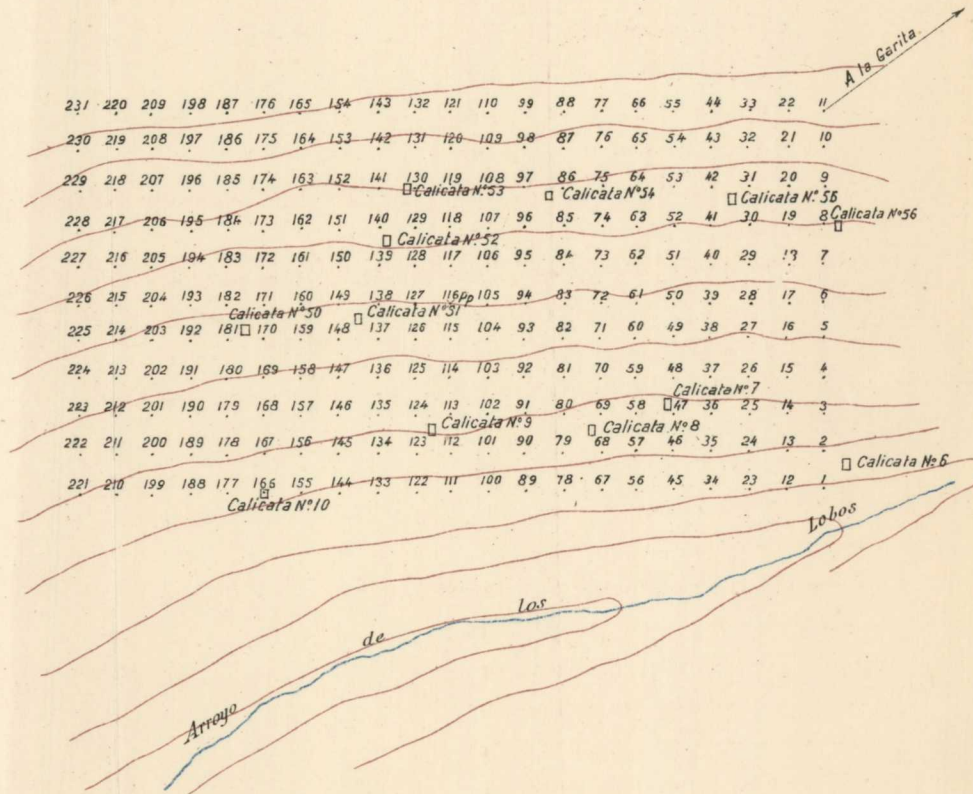 A la Garita
231 220 209 198 187 176 165 154 143 132 121 110 99 88 77 66 55 44 33 22 11
230 219 208 197 186 175 164 153 142 131 120 109 98 87 76 65 54 43 32 21 10
229 218 207 196 185 174 163 152 141 130 119 108 97 86 75 64 53 42 31 20 9
Calicata Nº 53 Calicata Nº 54 Calicata Nº 55
228 217 206 195 184 173 162 151 140 129 118 107 96 85 74 63 52 41 30 19 8 Calicata Nº 56
Calicata Nº 52
227 216 205 194 183 172 161 150 139 128 117 106 95 84 73 62 51 40 29 18 7
226 215 204 193 182 171 160 149 138 127 116 pp 105 94 83 72 61 50 39 28 17 6
Calicata Nº 50 Calicata Nº 51
225 214 203 192 181 170 159 148 137 126 115 104 93 82 71 60 49 38 27 16 5
224 213 202 191 180 169 158 147 136 125 114 103 92 81 70 59 48 37 26 15 4
Calicata Nº 7
223 212 201 190 179 168 157 146 135 124 113 102 91 80 69 58 47 36 25 14 3
Calicata Nº 9 Calicata Nº 8
222 211 200 189 178 167 156 145 134 123 112 101 90 79 68 57 46 35 24 13 2
Calicata Nº 6
221 210 199 188 177 166 155 144 133 122 111 100 89 78 67 56 45 34 23 12 1
Calicata Nº 10
Arroyo de los Lobos